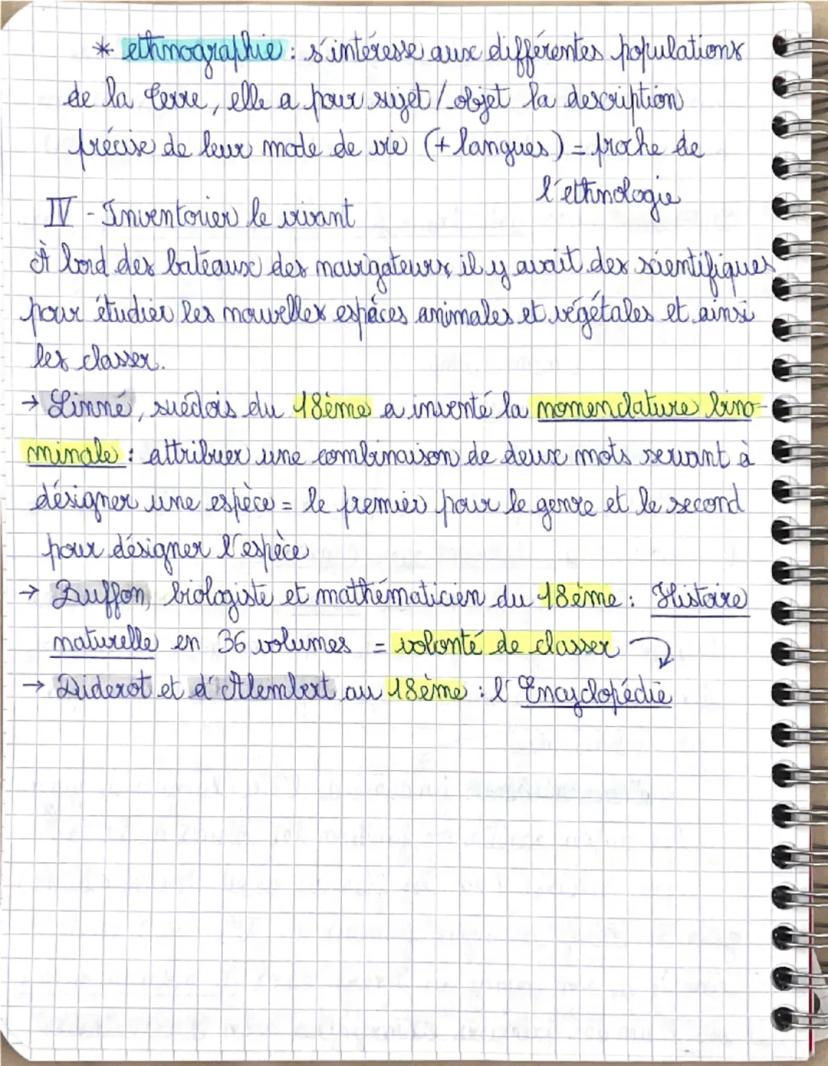 * ethnographie : s'intéresse aux différentes populations
de la Terre, elle a pour sujet/objet la description
précise de leur mode de vie (+ langues) = proche de
l'ethnologie
IV - Inventorier le vivant
À bord des bateaux des navigateurs, il y avait des scientifiques
pour étudier les nouvelles espèces animales et végétales et ainsi
les classer.
→ Linné, suédois du 18ème a inventé la nomenclature bino-
minale : attribuer une combinaison de deux mots servant à
désigner une espèce = le premier pour le genre et le second
pour désigner l'espèce
→ Buffon, biologiste et mathématicien du 18ème : Histoire
naturelle en 36 volumes = volonté de classer
→ Diderot et d'Alembert au 18ème : l'Encyclopédie